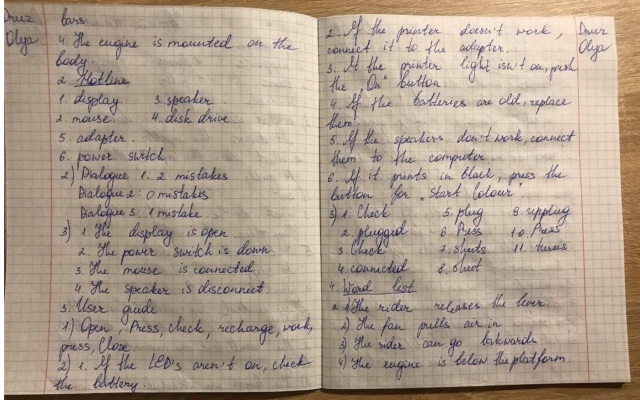 Druz
Olya
bars
4 The engine is mounted on the
body
2 Hotline
1. display 3. speaker
2. mouse. 4. disk drive
5. adapter.
6. power switch
2) Dialogue 1: 2 mistakes
Dialogue 2: 0 mistakes
Dialogue 3: 1 mistake
3) 1. The display is open
2 The power switch is down
3. The mouse is connected
4 The speaker is disconnect
3. User guide
1) Open, Press, check, recharge, work,
press, Close
2) 1. If the LED's aren't on, check
the battery.
2. If the printer doesn't work,
connect it to the adapter.
3. If the printer light isn't on, push
the "On" button.
4. If the batteries are old, replace
them.
5. If the speakers don't work, connect
them to the computer.
6. If it prints in black, press the
button for "Start Colour".
Druz
Olya
3) 1. Check 5. plug 9.
2. plugged 6 Press 10. Press
3. Check 7. shuts 11. turns
4. connected 8. shut
4. Word list
2 1) The rider releases the lever
2) The fan pulls air in
3) The rider can go bakwards
4) The engine is below the platform